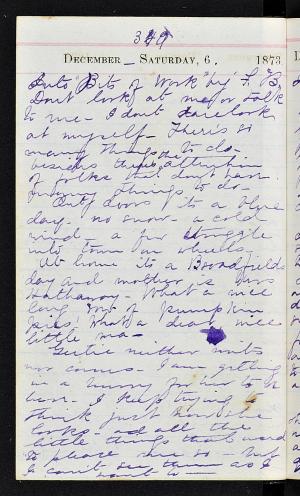 349
DECEMBER — SATURDAY, 6. 1873
Into "Bits of Work" by F. B.
Don't look at me or talk
to me — I don't dare look
at myself — There is so
many things to do —
besides the attention
of folks that don't have
many things to do —
Out doors it's a blue
day — no snow — a cold
wind — a few struggle
into town on wheels.
At home it's a Broadfields
day and mother is Mrs
Hathaway — What a nice
long row of pumpkin
pies! What a dear nice
little ma —
Gertie neither writes
nor comes — I am getting
in a hurry for her to be
here. I keep trying to
think just how she
looks and all the
little things that used
to please me so — but
I can't see them as I
want to —